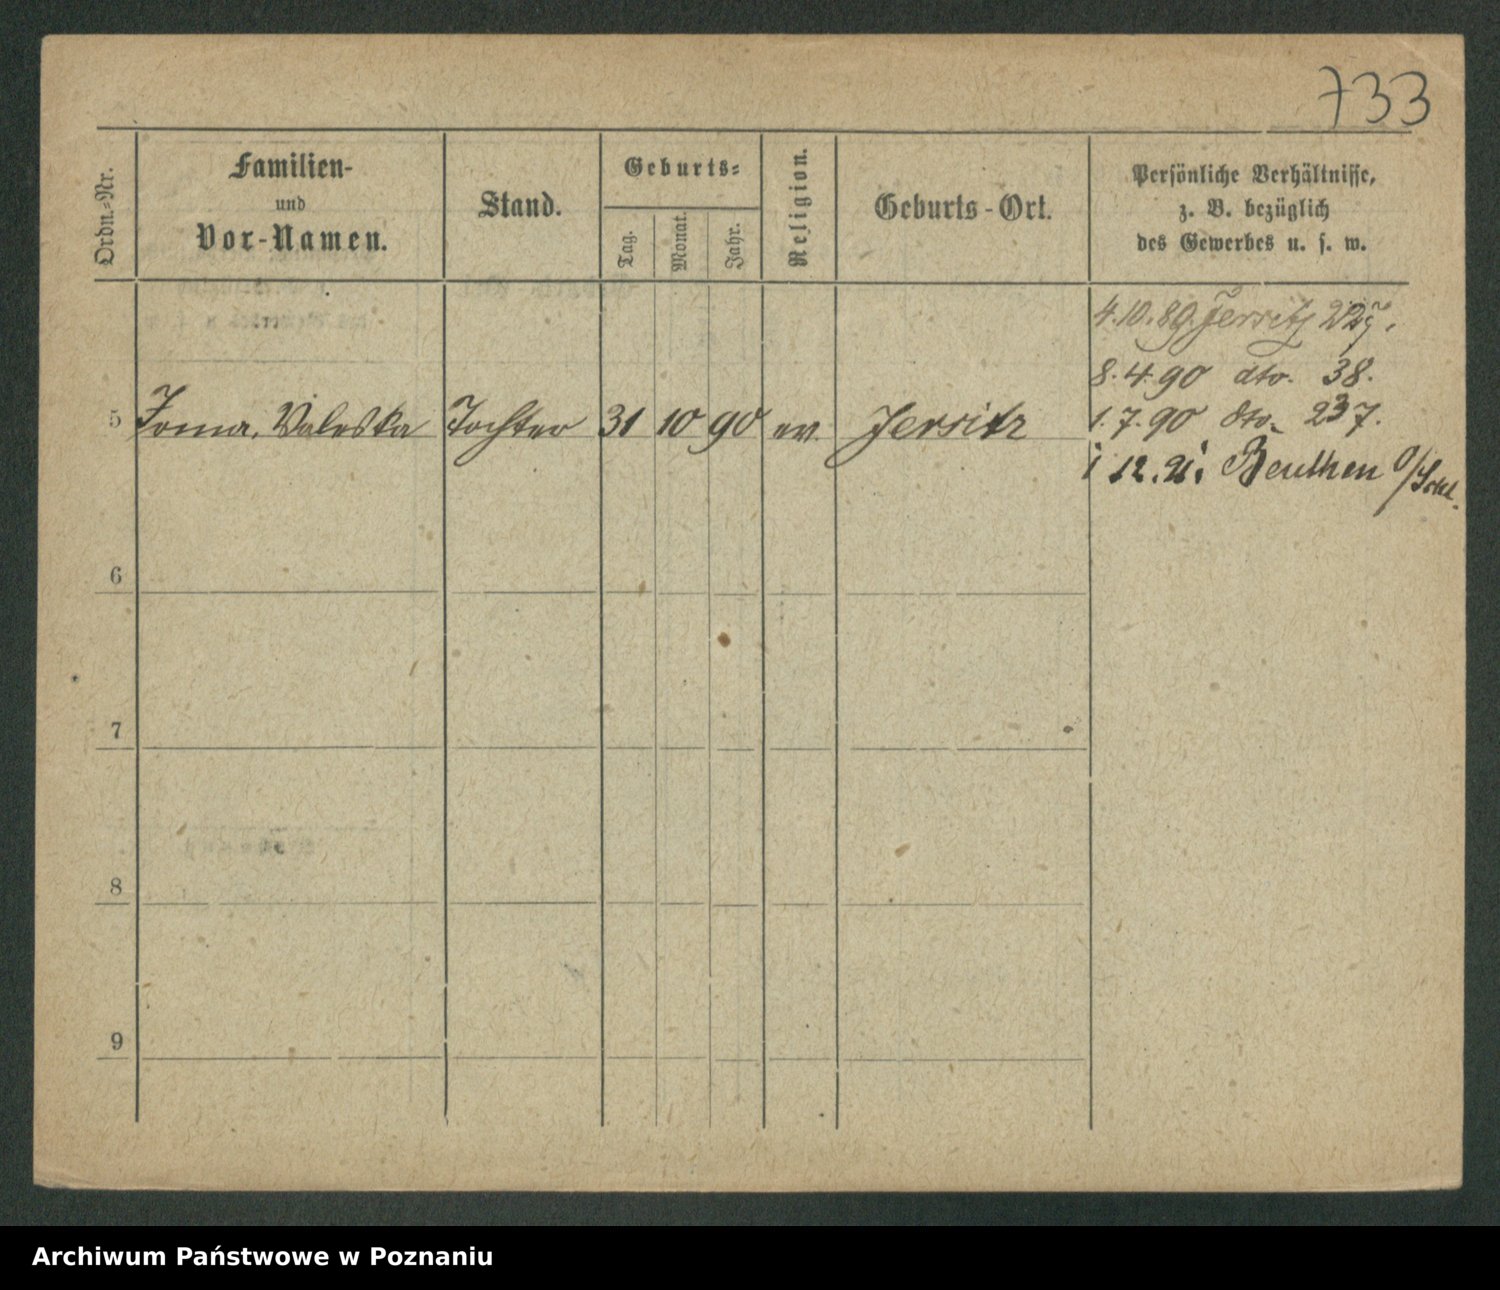 733
Ordn.-Nr.
Familien-
und
Vor-Namen.
Stand.
Geburts-
Tag.
Monat.
Jahr.
Religion.
Geburts-Ort.
Persönliche Verhältnisse,
z. B. bezüglich
des Gewerbes u. s. w.
4.10.89. Jersitz
8.4.90 dto. 38.
5 Irma, Valeska Tochter 31 10 90 ev. Jersitz
1.7.90 dto. 237.
12.91. Beuthen O/Schl.
6
7
8
9
Archiwum Państwowe w Poznaniu